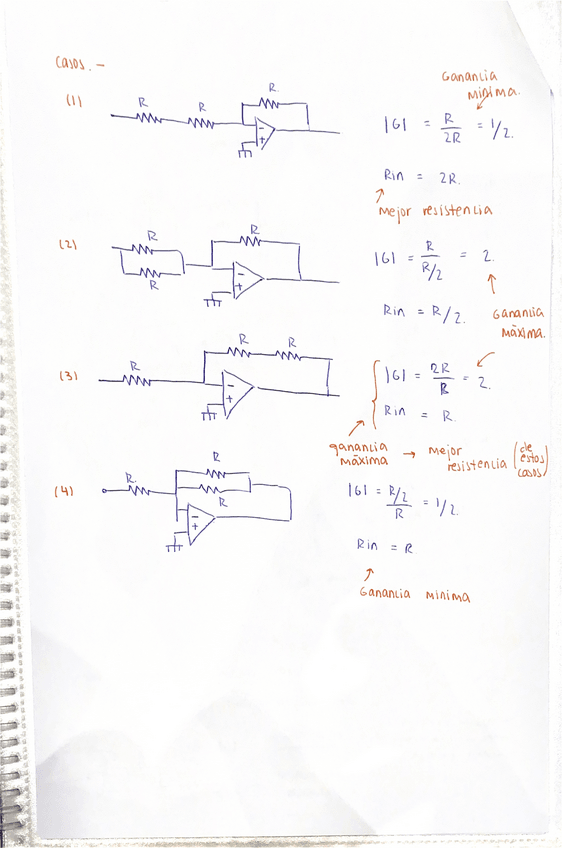 Casos.-
(1)
R
R
R
-
+
|G| = R/2R = 1/2.
Ganancia
minima.
Rin = 2R.
Mejor resistencia
(2)
R
R
R
-
+
|G| = R/R/2 = 2.
Rin = R/2.
Ganancia
máxima.
(3)
R
R
R
-
+
|G| = 2R/R = 2.
Rin = R.
ganancia
máxima
→ mejor
resistencia
(de
estos
casos)
(4)
R.
R
R
-
+
|G| = R/2/R = 1/2.
Rin = R
Ganancia minima